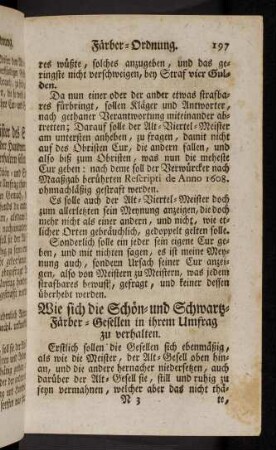 Färber-Ordnung. 197
res wüßte, solches anzugeben, und das ge-
ringste nicht verschweigen, bey Straf vier Gul-
den.
Da nun einer oder der ander etwas strafba-
res fürbringt, sollen Kläger und Antworter,
nach gethaner Verantwortung miteinander ab-
tretten; Darauf solle der Alt-Viertel-Meister
am untersten anheben, zu fragen, damit nicht
auf des Obristen Cur, die andern fallen, und
also biß zum Obristen, was nun die meheste
Cur geben: nach deme soll der Verwürcker nach
Maaßgab berührten Rescripti de Anno 1608.
ohnnachläßig gestraft werden.
Es solle auch der Alt-Viertel-Meister doch
zum allerletzten sein Meynung anzeigen, die doch
mehr nicht als einer andern, und nicht, wie et-
licher Orten gebräuchlich, gedoppelt gelten solle.
Sonderlich solle ein jeder sein eigene Cur ge-
ben, und mit nichten sagen, es ist meine Mey-
nung auch, sondern Ursach seiner Cur anzei-
gen, also von Meistern zu Meistern, was jedem
strafbares bewust, gefragt, und keiner dessen
überhebt werden.
Wie sich die Schön- und Schwartz-
Färber-Gesellen in ihrem Umfrag
zu verhalten.
Erstlich sollen die Gesellen sich ebenmäßig,
als wie die Meister, der Alt-Gesell oben hin-
an, und die andere hernacher niedersetzen, auch
darüber der Alt-Gesell sie, still und ruhig zu
seyn vermahnen, welcher aber das nicht thä-
N 3 te,